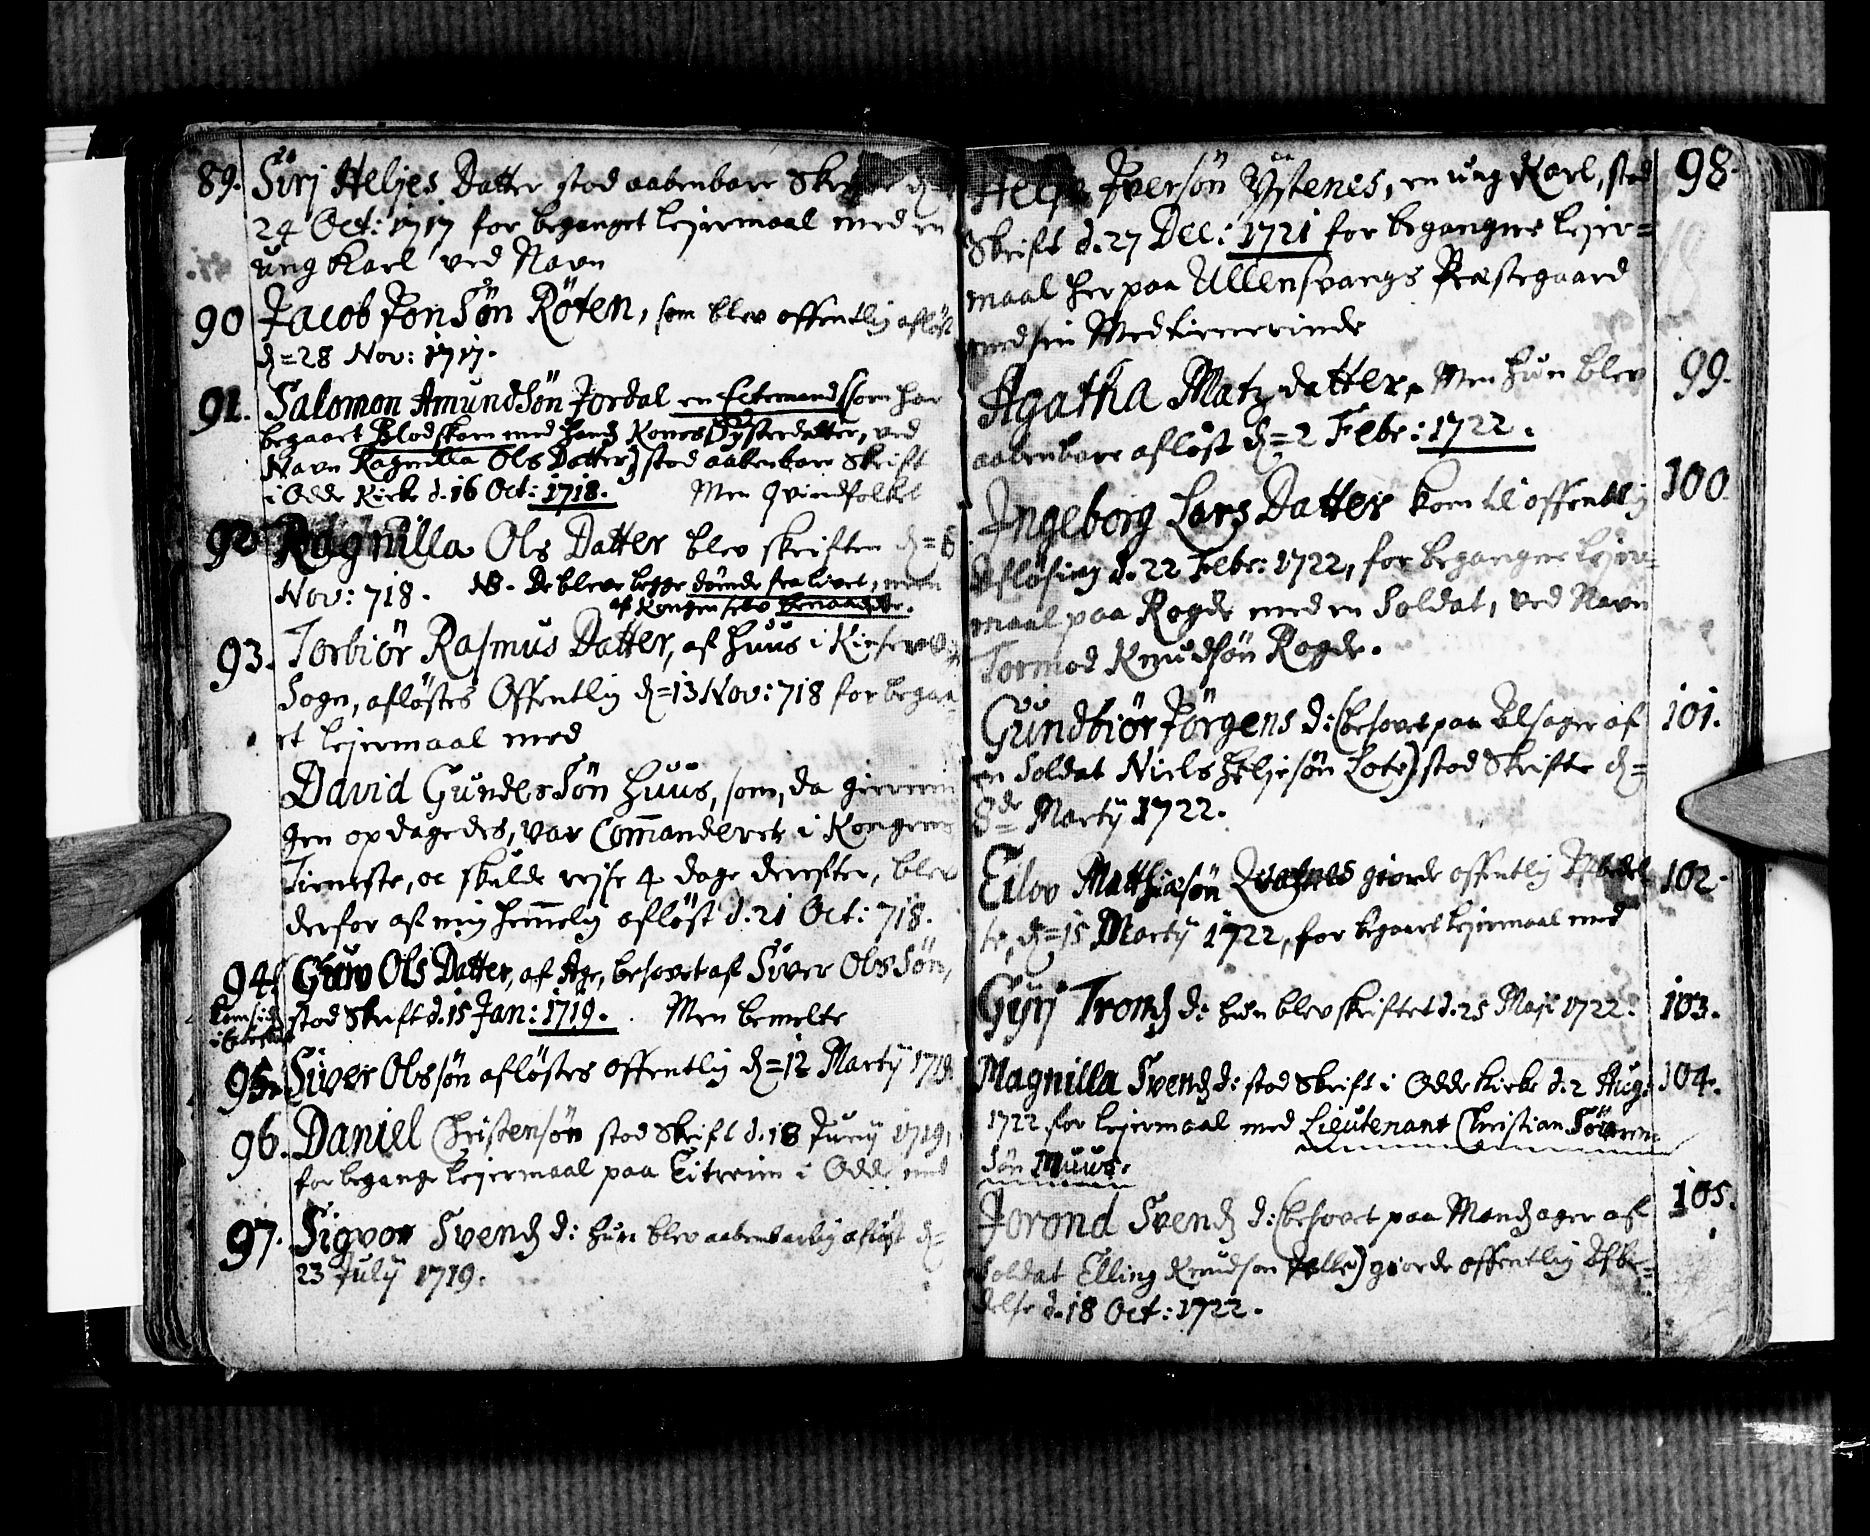 89. Siri Heljes Datter stod aabenbare Skrifte d.
24 Oct: 1717 for beganget lejermaal med en
ung Karl ved Navn
90 Jacob Jonsön Röten, som blev offentlig aflöst
d=28 Nov: 1717.
91. Salomon Amundsön Jordal en Ectemand (som har
begaaet Blodskam med hans Kones Systerdatter, ved
Navn Ragnilla Ols Datter) stod aabenbare Skrift
i Odde Kirke d. 16 Oct: 1718. Men Qvindfolket
92 Ragnilla Ols Datter blev skriften d=6
Nov: 718. NB. De bleve begge dömde fra livet, men
af Kongen selv benaadede.
93. Torbiör Rasmus Datter, af Huus i Kinservigs
Sogn, aflöstes Offentlig d=13 Nov: 718 for begaa-
et lejermaal med
David Gundersön Huus, som, da gierni
gen opdagedes, var Commanderet i Kongens
Tieneste, oc skulde rejse 4 dage derefter, blev
derfor af mig hemmelig aflöst d. 21 Oct: 718.
94. Guro Ols Datter, af Age, besovet af Siver Olssön,
kom sid: stod Skrift d. 15 Jan: 1719. Men bemelte
95. Siver Olssön aflöstes offentlig d=12 Martij 1719
96. Daniel Christensön stod Skrift d. 18 Junij 1719,
for begange lejermaal paa Eitreim i Odde med
97. Sigvor Svends d: hun blev aabenbarlig aflöst d=
23 Julij 1719.
Helje Iversön Ystenes, en ung Karl, stod 98.
Skrift d. 27 Dec: 1721 for begangne lejer=
maal her paa Ullensvangs Præstegaard
med sin Medtienerinde
Agatha Matz datter, Men hun blev 99.
aabenbare aflöst d=2 Febr: 1722.
Ingeborg Lars Datter kom til offentlig 100
Aflösing d. 22 Febr: 1722, for begangne lejer=
maal paa Rogde med en Soldat, ved Navn
Tormod Knudsön Rogde.
Gundbiör Jörgens d: (besovet paa Alsager af 101.
en Soldat Niels Heljesön Lote) stod Skrifte d=
8de Martij 1722.
Eilov Matthiæsön giorde offentlig Afbedel 102.
se, d=15 Martij 1722, for begaaet lejermaal med
Gyrj Tronds d: hun blev skriftet d. 25 Maji 1722. 103.
Magnilla Svends d: stod Skrift i Odde Kirke d. 2 Aug: 104.
1722 for lejermaal med Lieutenant Christian Sören
sön Muus.
Jorond Svends d: (besovet paa Mandzager af 105.
Soldat Elling Knudsön) giorde offentlig Afbe=
delse d. 18 Oct: 1722.